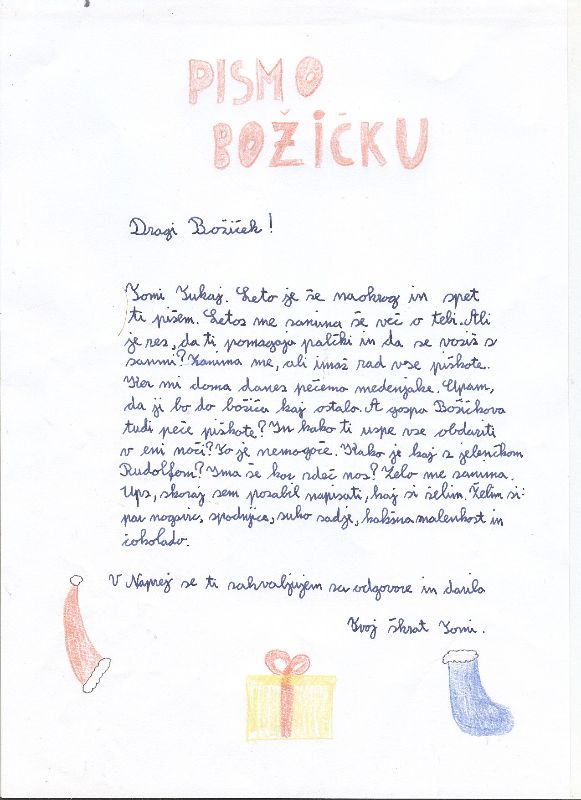 PISMO
BOŽIČKU
Dragi Božiček!
Tomi Tukaj. Leto je še naokrog in spet
ti pišem. Letos me zanima še več o tebi. Ali
je res, da ti pomagajo palčki in da se voziš s
sanmi? Zanima me, ali imaš rad vse piškote.
Ker mi doma danes pečemo medenjake. Upam,
da ji bo do božiča kaj ostalo. A gospa Božičkova
tudi peče piškote? In kako ti uspe vse obdariti
v eni noči? To je nemogoče. Kako je kaj z jelenčkom
Rudolfom? Ima še kar rdeč nos? Zelo me zanima.
Ups, skoraj sem pozabil napisati, kaj si želim. Želim si:
par nogavic, spodnjice, suho sadje, kakšna malenkost in
čokolado.
V Naprej se ti zahvaljujem za odgovore in darila
Tvoj škrat Tomi.